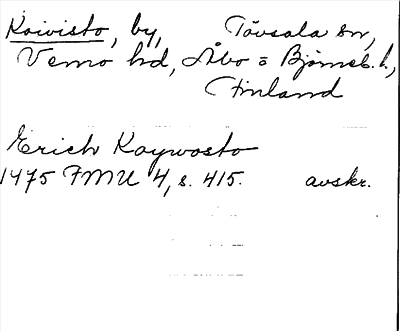 Koivisto, by, Tövsala sn,
Vemo hd, Åbo o Björneb. l.,
Finland
Erich Kaywosto
1475 FMU 4, s. 415. avskr.